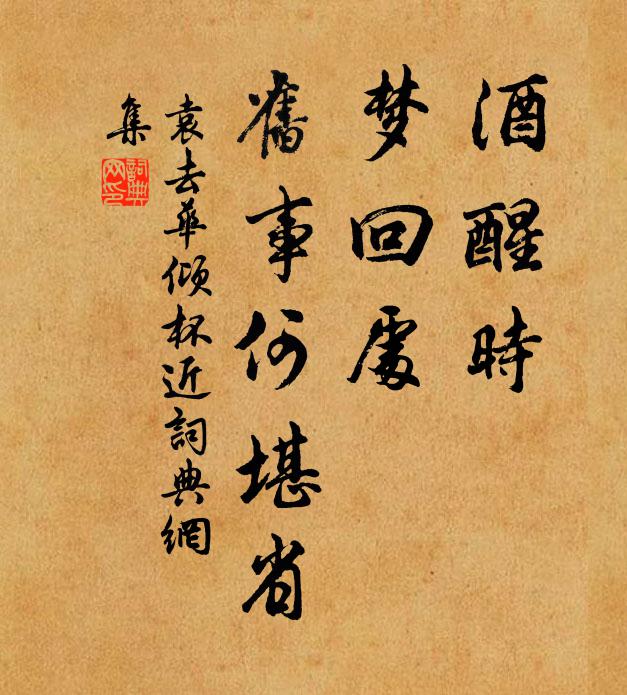 酒醒時
梦回處
舊事何堪省
袁去華傾杯近詞典網
集
詞典
网印